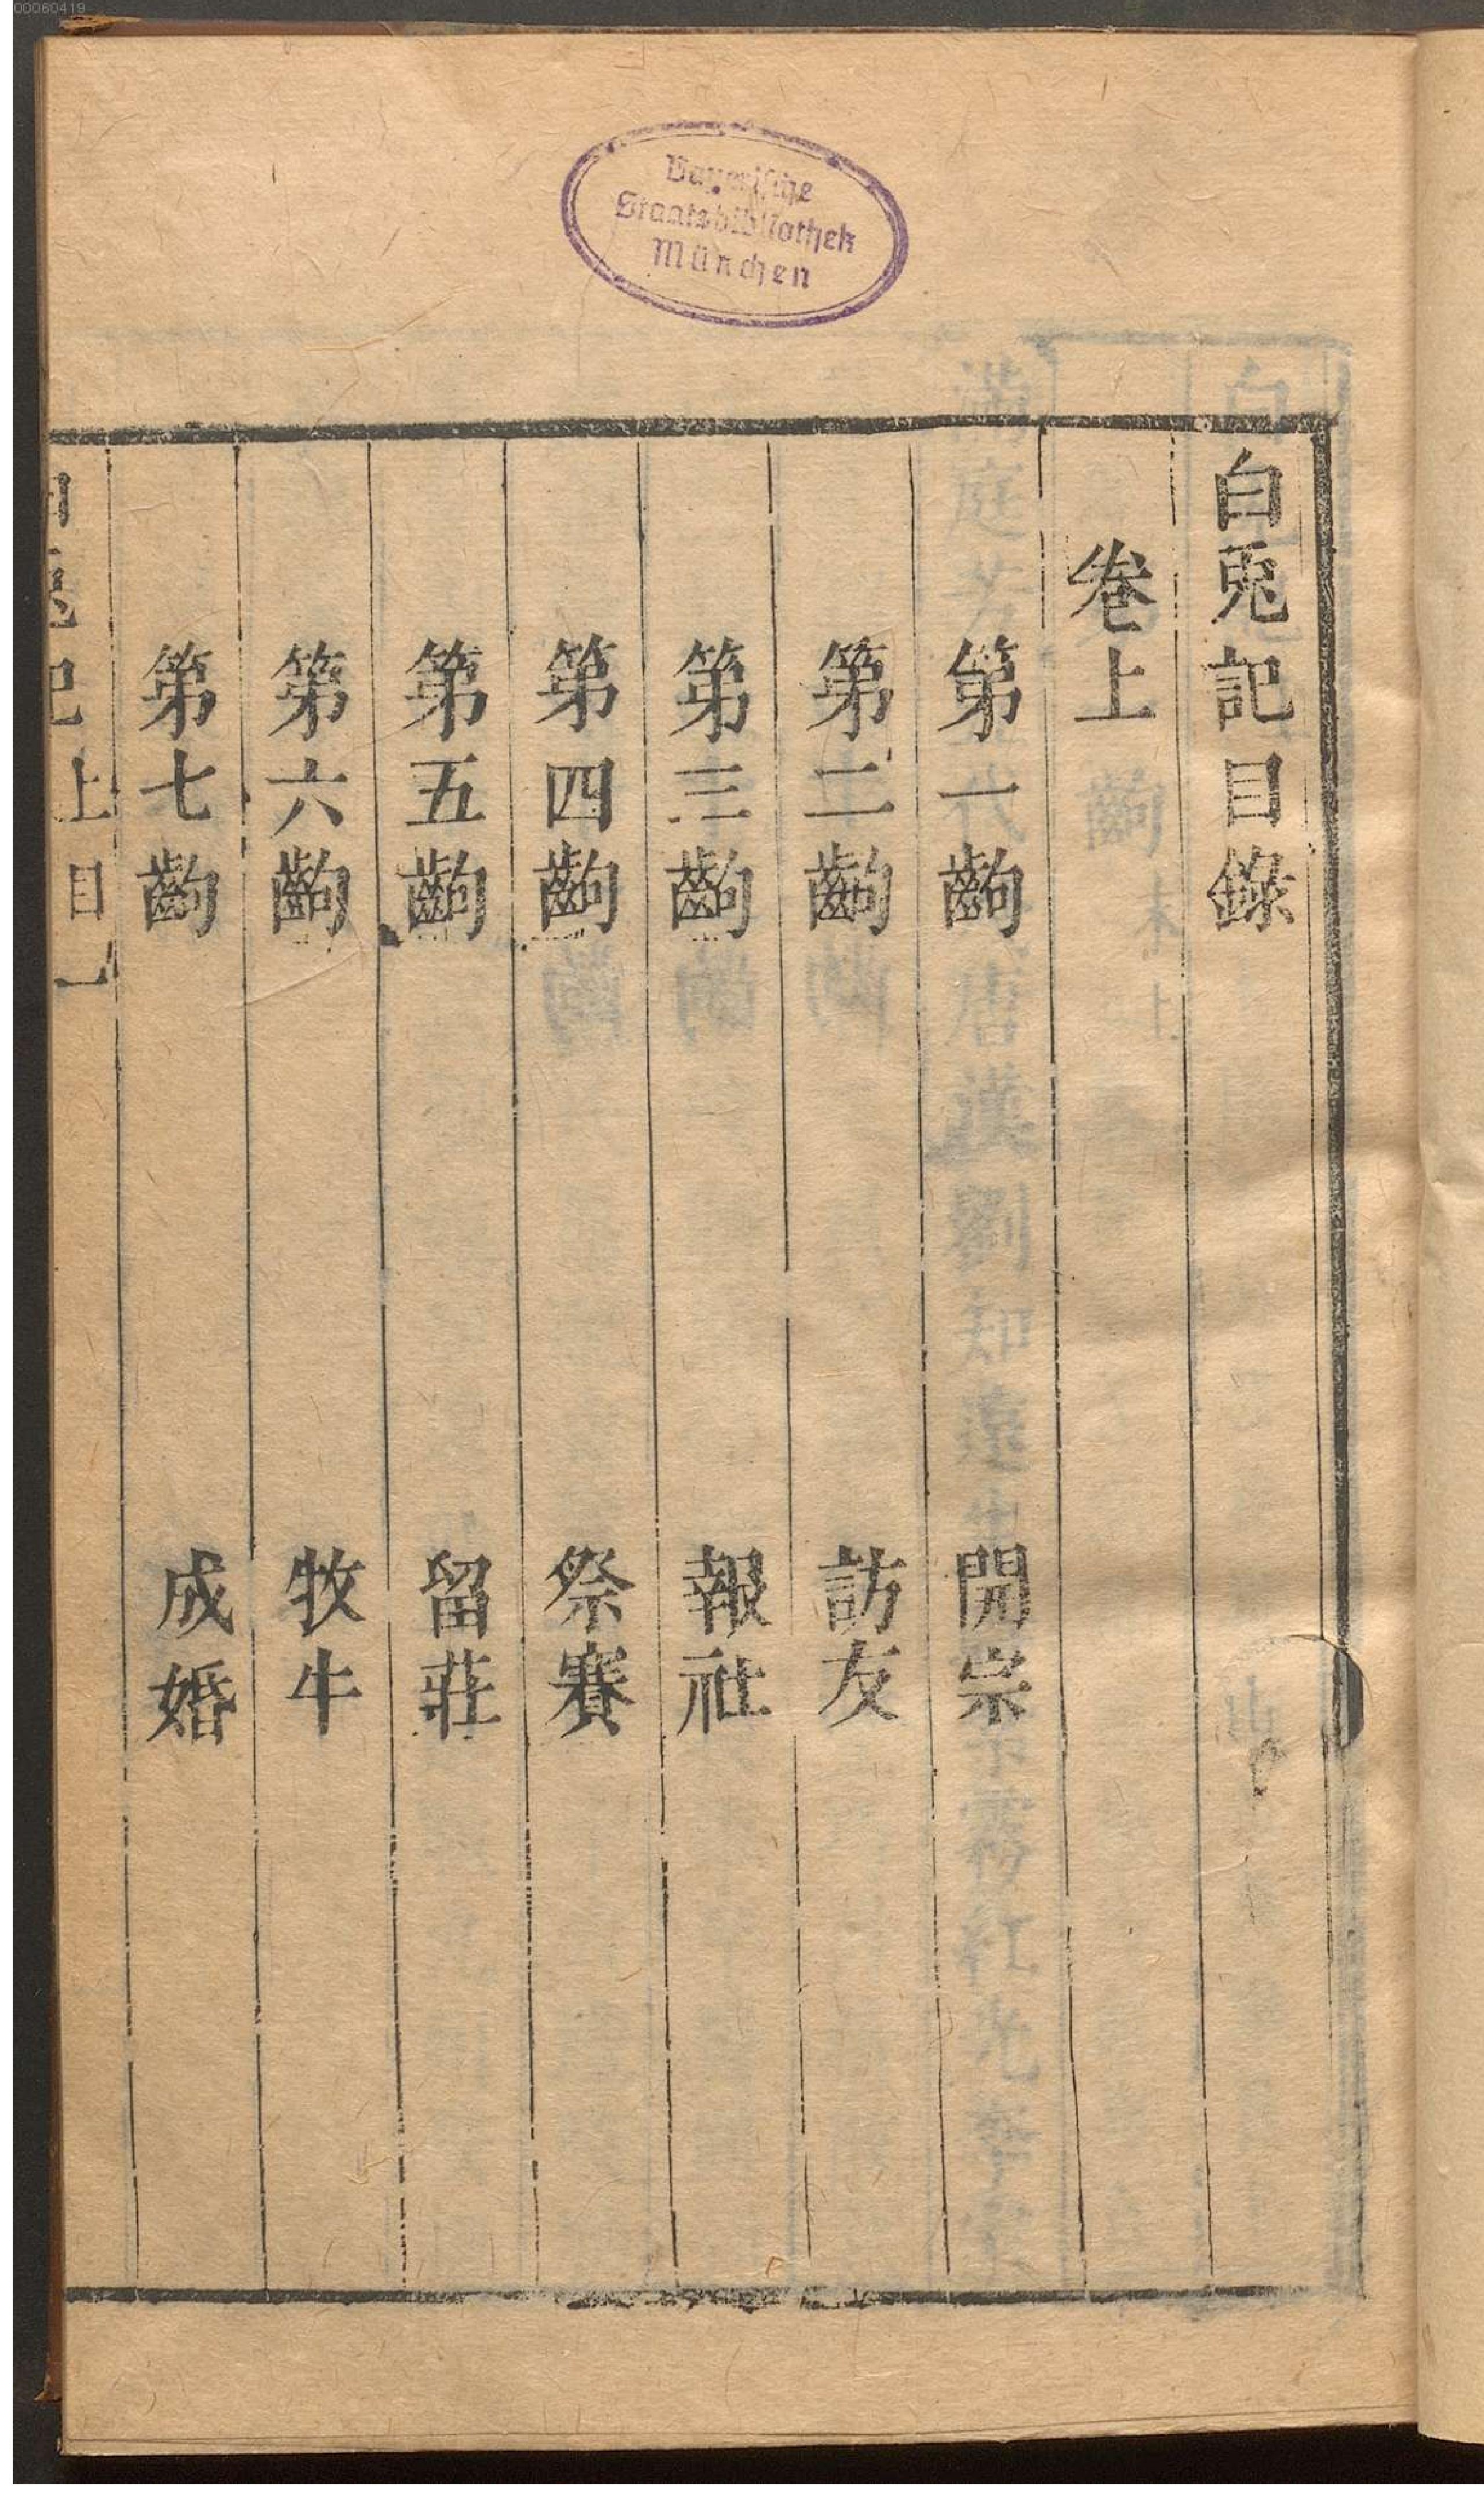 00060419
Bayerische
Staatsbibliothek
München
白兎記目錄
卷上
第一齣 開宗
第二齣 訪友
第三齣 報社
第四齣 祭賽
第五齣 留莊
第六齣 牧牛
第七齣 成婚
白兎記 上目 一